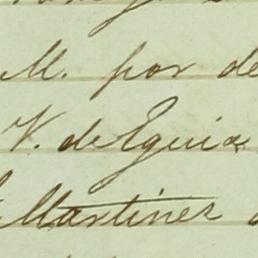 M. por de
V. de Eguia
Martinez